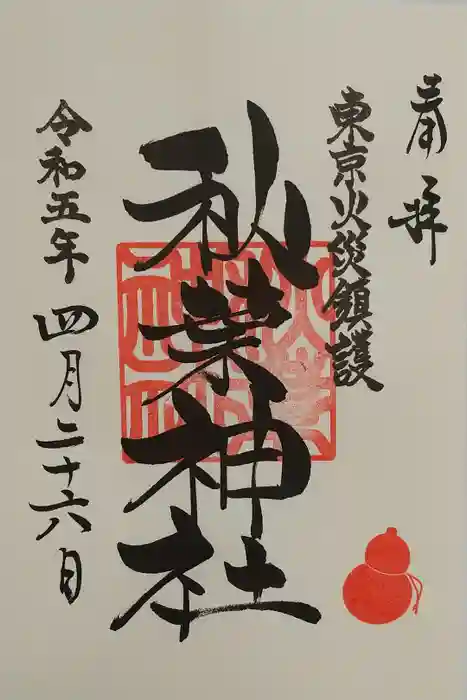 奉拝
東京火災鎮護
秋葉神社
令和五年
四月二十六日